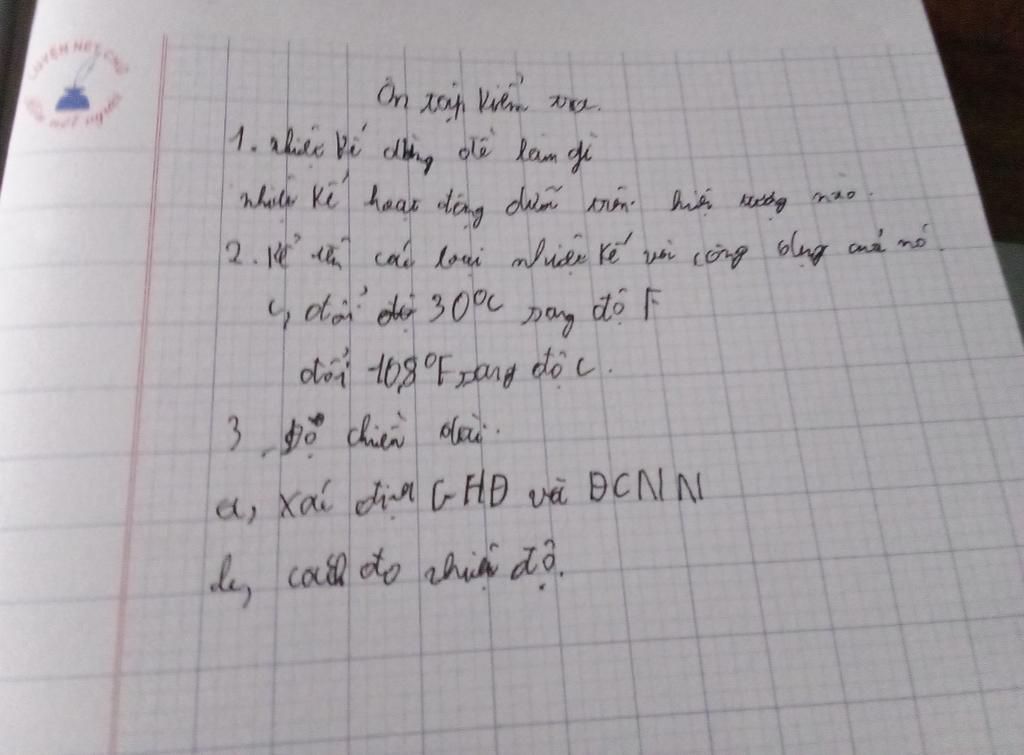 LUYỆN NÉT CHỮ
RÈN NẾT NGƯỜI
Ôn tập kiểm tra.
1. nhiệt kế dùng để làm gì
nhiệt kế hoạt động dựa trên hiện tượng nào.
2. Kể tên các loại nhiệt kế và công dụng của nó.
đổi độ 30°C sang độ F
đổi 108°F sang độ C.
3. Đo chiều dài.
a, Xác định GHĐ và ĐCNN
b, cách đo nhiệt độ.